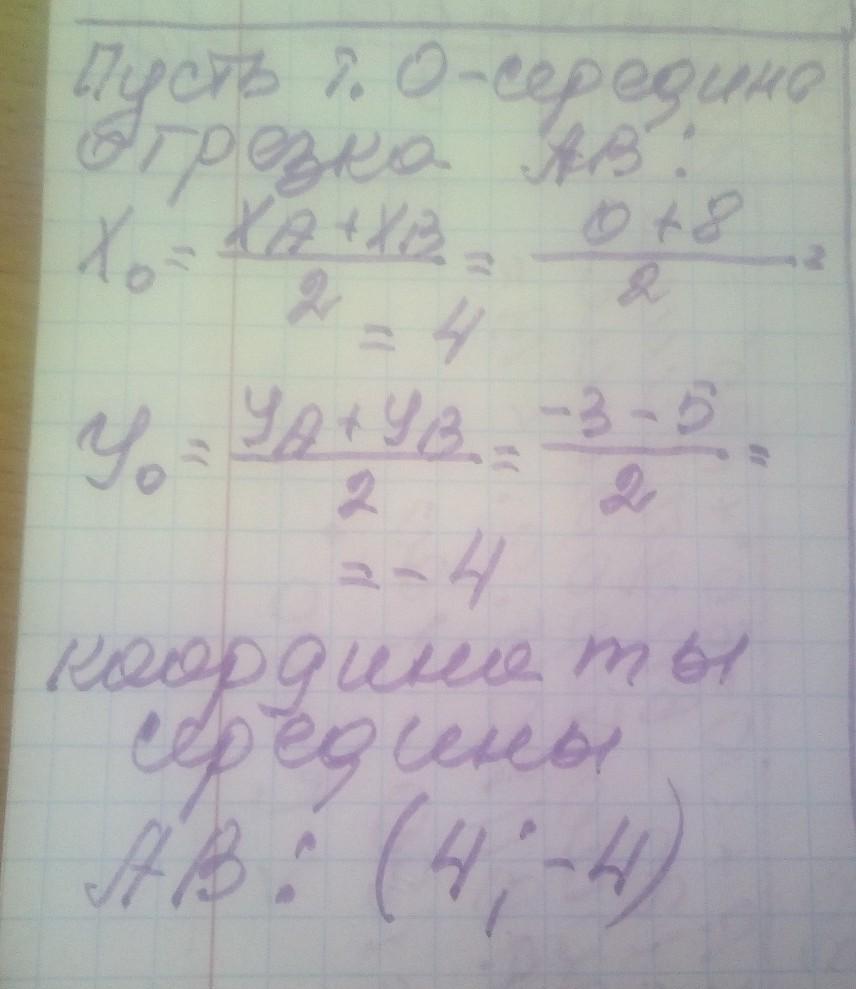 Пусть т. О-середина
отрезка АВ:
X₀ = (XA + XB)/2 = (0 + 8)/2 =
= 4
У₀ = (УA + УB)/2 = (-3 - 5)/2 =
= - 4
координаты
середины
АВ: (4; -4)